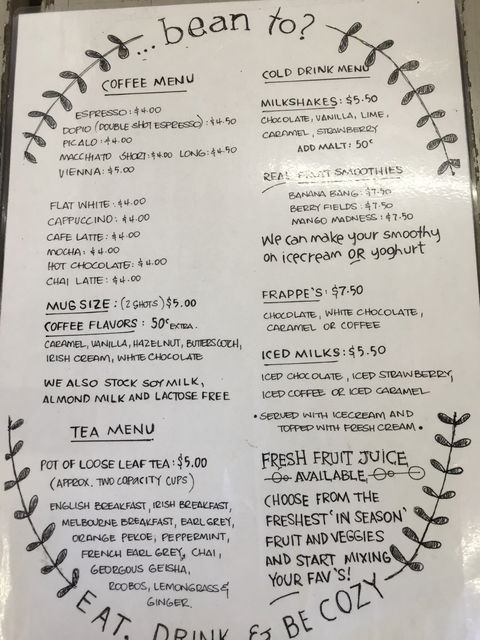 ...bean to?
COFFEE MENU
ESPRESSO: $4.00
DOPIO (DOUBLE SHOT ESPRESSO): $4.50
PICALO: $4.00
MACCHIATO SHORT: $4.00 LONG: $4.50
VIENNA: $5.00
FLAT WHITE: $4.00
CAPPUCCINO: $4.00
CAFE LATTE: $4.00
MOCHA: $4.00
HOT CHOCOLATE: $4.00
CHAI LATTE: $4.00
MUG SIZE: (2 SHOTS) $5.00
COFFEE FLAVORS: 50¢ EXTRA.
CARAMEL, VANILLA, HAZELNUT, BUTTERSCOTCH,
IRISH CREAM, WHITE CHOCOLATE
WE ALSO STOCK SOY MILK,
ALMOND MILK AND LACTOSE FREE
TEA MENU
POT OF LOOSE LEAF TEA: $5.00
(APPROX. TWO CAPACITY CUPS)
ENGLISH BREAKFAST, IRISH BREAKFAST,
MELBOURNE BREAKFAST, EARL GREY,
ORANGE PEKOE, PEPPERMINT,
FRENCH EARL GREY, CHAI,
GEORGOUS GEISHA,
ROOBOS, LEMONGRASS &
GINGER.
COLD DRINK MENU
MILKSHAKES: $5.50
CHOCOLATE, VANILLA, LIME,
CARAMEL, STRAWBERRY
ADD MALT: 50¢
REAL FRUIT SMOOTHIES
BANANA BANG: $7.50
BERRY FIELDS: $7.50
MANGO MADNESS: $7.50
We can make your smoothy
on icecream OR yoghurt
FRAPPE'S: $7.50
CHOCOLATE, WHITE CHOCOLATE,
CARAMEL OR COFFEE
ICED MILKS: $5.50
ICED CHOCOLATE, ICED STRAWBERRY,
ICED COFFEE OR ICED CARAMEL
• SERVED WITH ICECREAM AND
TOPPED WITH FRESH CREAM •
FRESH FRUIT JUICE
AVAILABLE
CHOOSE FROM THE
FRESHEST 'IN SEASON'
FRUIT AND VEGGIES
AND START MIXING
YOUR FAV'S!
EAT, DRINK & BE COZY